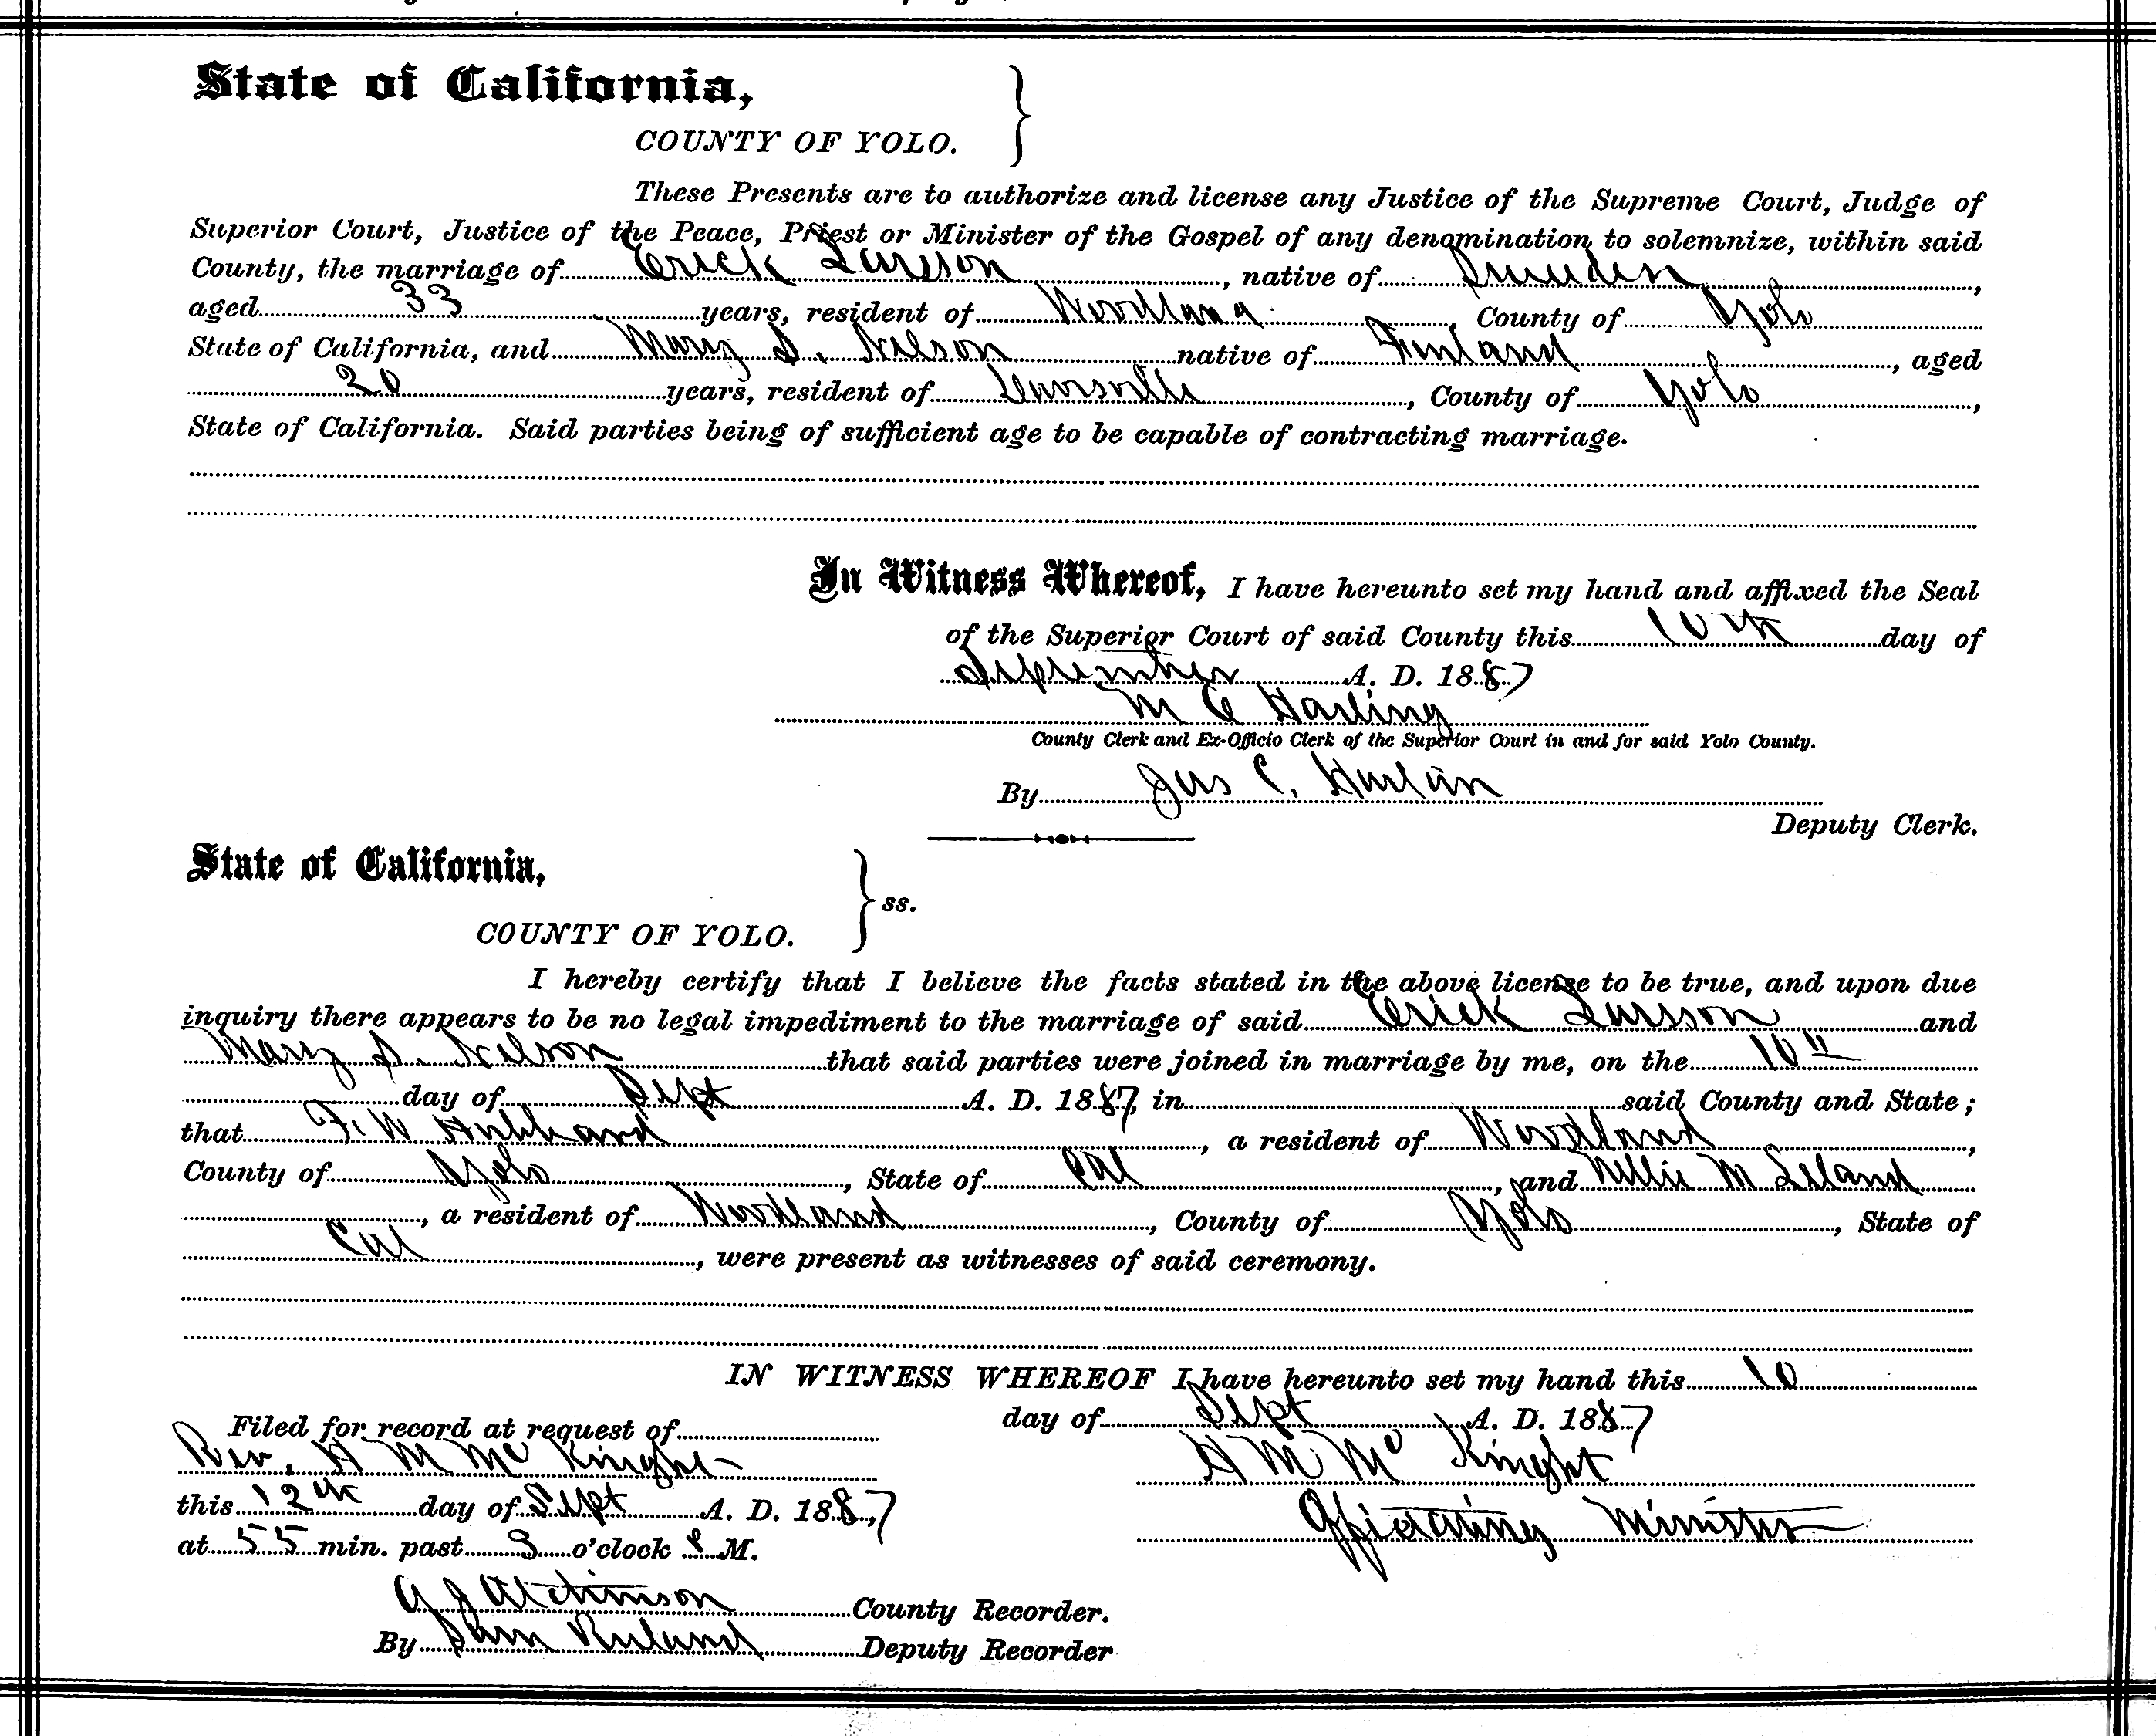 State of California,
COUNTY OF YOLO.
These Presents are to authorize and license any Justice of the Supreme Court, Judge of
Superior Court, Justice of the Peace, Priest or Minister of the Gospel of any denomination to solemnize, within said
County, the marriage of Erick Larsson, native of Sweden,
aged 33 years, resident of Woodland County of Yolo
State of California, and Mary S. Nelson native of Finland, aged
20 years, resident of, County of Yolo,
State of California. Said parties being of sufficient age to be capable of contracting marriage.
In Witness Whereof, I have hereunto set my hand and affixed the Seal
of the Superior Court of said County this 10th day of
September A. D. 1887
M C Harling
County Clerk and Ex-Officio Clerk of the Superior Court in and for said Yolo County.
By Jas C. Harlan
Deputy Clerk.
State of California,
ss.
COUNTY OF YOLO.
I hereby certify that I believe the facts stated in the above license to be true, and upon due
inquiry there appears to be no legal impediment to the marriage of said Erick Larsson and
Mary S. Nelson that said parties were joined in marriage by me, on the 10"
day of Sept A. D. 1887, in said County and State;
that F. W Hubbard, a resident of Woodland,
County of Yolo, State of Cal, and Nellie M Leland
, a resident of Woodland, County of Yolo, State of
Cal, were present as witnesses of said ceremony.
IN WITNESS WHEREOF I have hereunto set my hand this 10
day of Sept A. D. 1887
H M Mc Knight
Officiating Minister
Filed for record at request of
Rev. H M Mc Knight
this 12th day of Sept A. D. 1887
at 55 min. past 3 o'clock P M.
G J Atchinson County Recorder.
By Sam Ruland Deputy Recorder